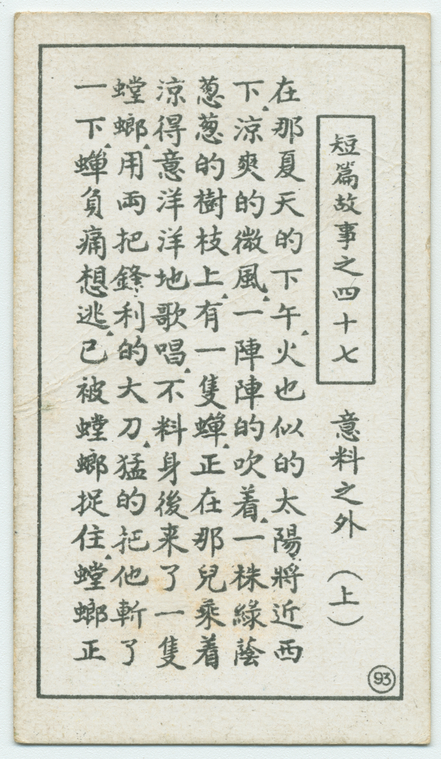 短篇故事之四十七
意料之外（上）
在那夏天的下午，火也似的太陽將近西
下，涼爽的微風，一陣陣的吹着，一株綠蔭
葱葱的樹枝上，有一隻蟬，正在那兒乘着
涼得意洋洋地歌唱，不料身後來了一隻
螳螂，用兩把鋒利的大刀，猛的把他斬了
一下，蟬負痛想逃，已被螳螂捉住，螳螂正
93